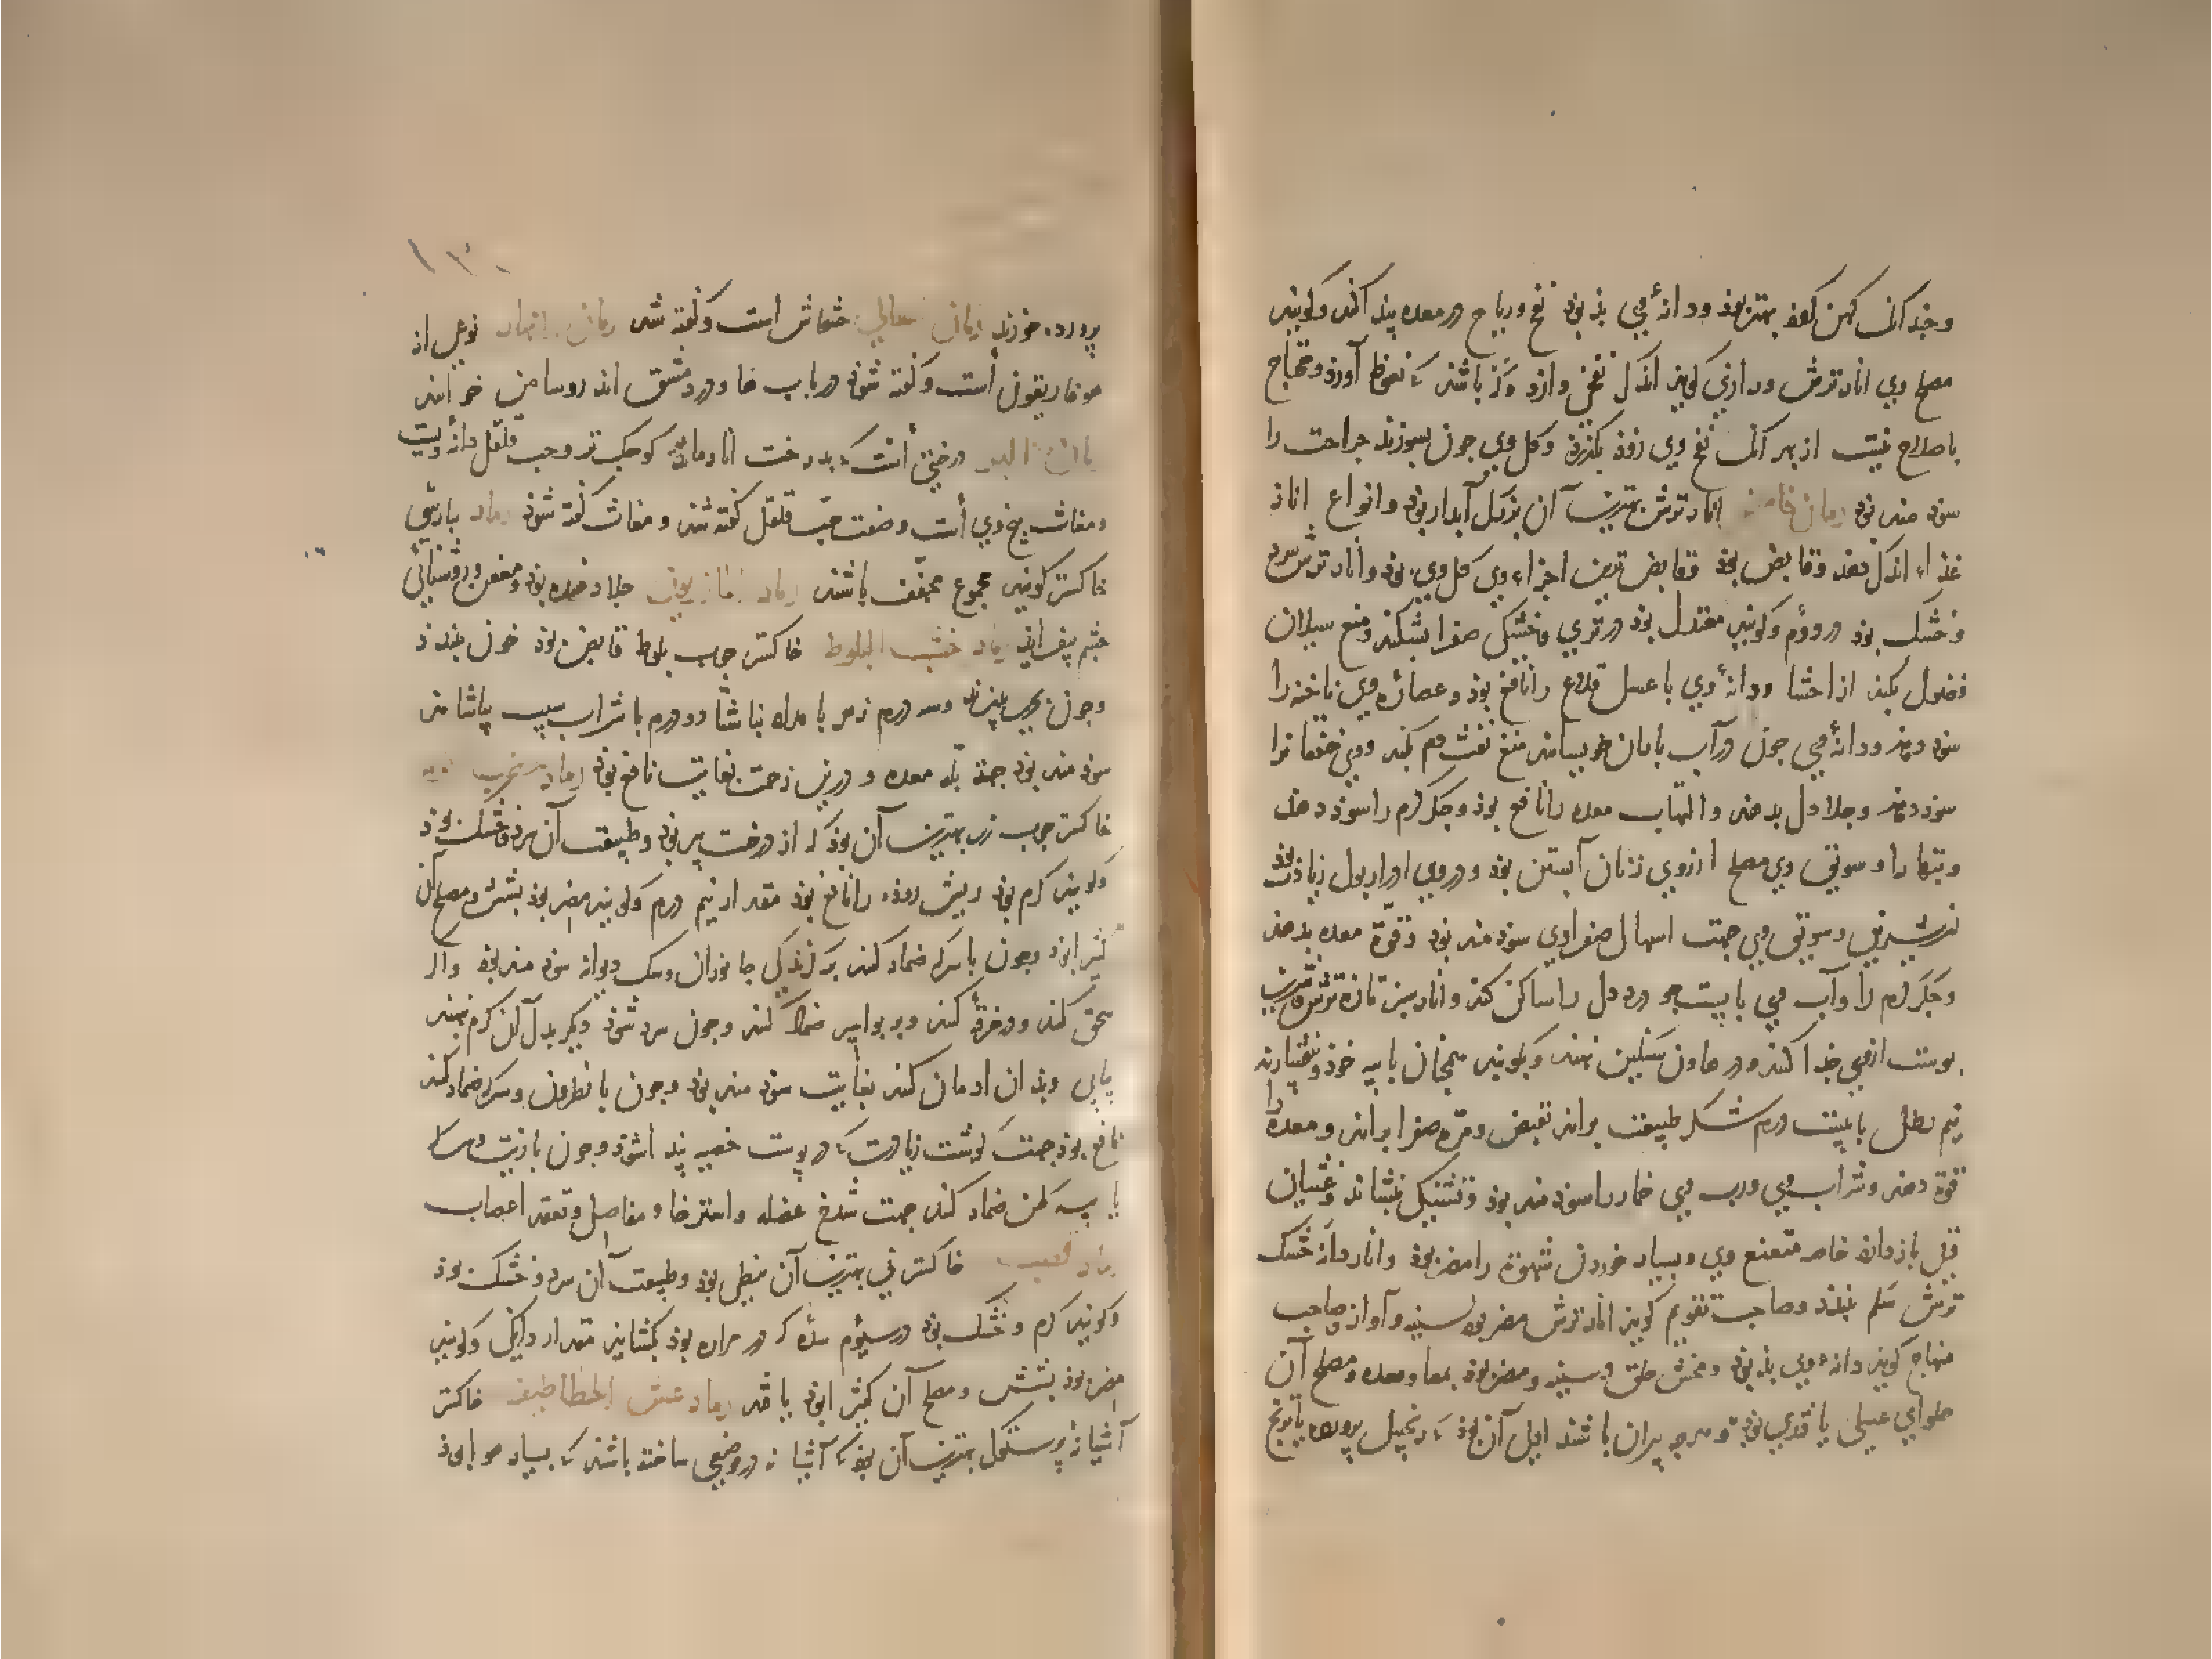 وجندانک کهن کردد بهتر بود ودانهٔ وی بد بود نفخ ورباح در معده پیدا کند وکویند
مصلح وی انار ترش ورازی کوید اندک نفخی دارد وکرم باشد که نعوظ آورد ومحتاج
باصلاح نیست از بهر آنک نفخ وی زود بکذرد وکل وی جون بسوزند جراحت را
سود مند بود رمان حامض انار ترش بهترین آن بزرکل آبدار بود وانواع انار
غذاء اندک دهد وقابض بود وقابض ترین اجزاء وی کل وی بود وانار ترش سرد
وخشک بود در دوّم وکویند معتدل بود در تری وخشکی صفرا بشکند ومنع سیلان
فضول بکند از احشا ودانهٔ وی با عسل قلاع را نافع بود وعصارهٔ وی ناخنه را
سود دهد ودانهٔ وی جون در آب باران خیسانند منع نفث دم بکند ووی خفقانرا
سود دهد وجلاء دل بدهد والتهاب معده را نافع بود وجکر کرم را سود دهد
وتبها را وسویق وی مصلح ارزوی زنان آبستن بود ودروی ادرار بول زیادت بود
از شیرین وسویق وی جهت اسهال صفراوی سود مند بود وقوّة معده بدهد
وجکر کرم را وآب وی با پست جو درد دل را ساکن کند وانار میز تازه ترش وشیرین
پوست ازوی جدا کنند ودر هاون سنکین نهند وبکوبند همجنان با پیه خود وبیفشارند
نیم رطل با بیست درم شکر طبیعت براند بقبض ومرّه صفرا براند ومعده را
قوّة دهد وشراب وی ورب وی خمار را سود مند بود وتشنکی بنشاند وغثیان
وقی باز دارد خاصه منعنع وی وبسیار خوردن شهوة را مضر بود وانار دانهٔ خشک
ترش شکم ببندد وصاحب تقویم کوید انار ترش مضر بود بسینه وآواز وصاحب
منهاج کوید دانهٔ وی بد بود ومخشن حلق وسینه ومضر بود بمعا ومعده ومصلح آن
حلوای عسلی یا قندی بود ومرد پیران باشد اولی آن بود که زنجبیل پرورده یا ترنج
پرورده خورند رمان سعالی خشخاش است وکفته شد رمان انهار نوعی از
هوفاریقون است وکفته شود در باب ها ودر دمشق انرا دوسا من خوانند
رمان البر درختی است که بدرخت انار ماند کوجک تر وحب قلقل دانهٔ ویست
ومغاث بیخ وی است وصفت حبّ قلقل کفته شد ومغاث کفته شود رماد بپارسی
خاکستر کویند مجموع مجفف باشند جلا دهنده بود ومقعر وروشنائی
جشم بیفزاید رماد خشب البلوط خاکستر جوب بلوط قابض بود خون ببندد
وسه درم با شراب سیب بیاشامند
سود مند بود جهة بلّه معده ودرین زحمت بغایت نافع بود رماد
خاکستر جوب رز بهترین آن بود که از درخت پیر بود وطبیعت آن سرد وخشک بود
وکویند کرم بود وریش روده را نافع بود مقدار نیم درم وکویند مضر بود بشش ومصلح آن
کثیرا بود وجون با سرکه ضماد کنند بر کزندکی جانوران وسک دیوانه سود مند بود واکر
سحق کنند ودر خرقه کنند وبر بواسیر ضماد کنند وجون سرد شود دیکر بدل آن کرم نهند
پیاپی وبدان ادمان کنند بغایت سود مند بود وجون با نطرون وسرکه ضماد کنند
نافع بود جهت کوشت زیادت که در پوست خصیه پیدا شود وجون با زیت وسرکه
یا پیه کهن ضماد کنند جهت شدخ عضله واسترخاء مفاصل وتعقد اعصاب
رماد القصب خاکستر نی بهترین آن نبطی بود وطبیعت آن سرد وخشک بود
وکویند کرم وخشک بود در سیوم سدّه که در مراره بود بکشاید مقدار دانکی وکویند
مضر بود بشش ومصلح آن کثیرا بود یا قند رماد عش الخطاطیف خاکستر
آشیانهٔ پرستک بهترین آن بود که آشیانه در موضعی ساخته باشند که بسیار هوا بود